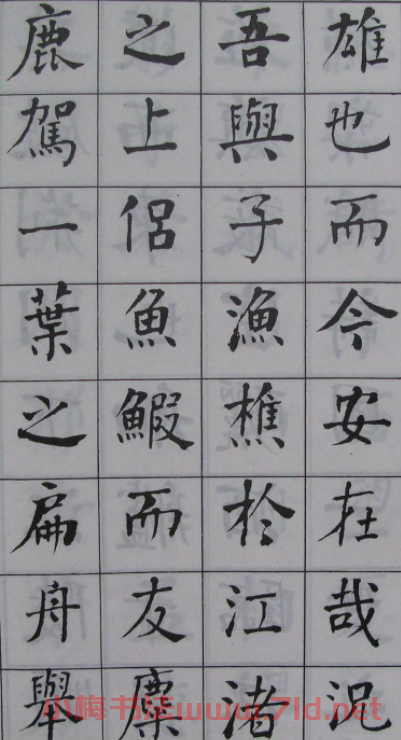 雄也而今安在哉況
吾與子漁樵於江渚
之上侶魚鰕而友麋
鹿駕一葉之扁舟舉
小梅书法www.71d.net